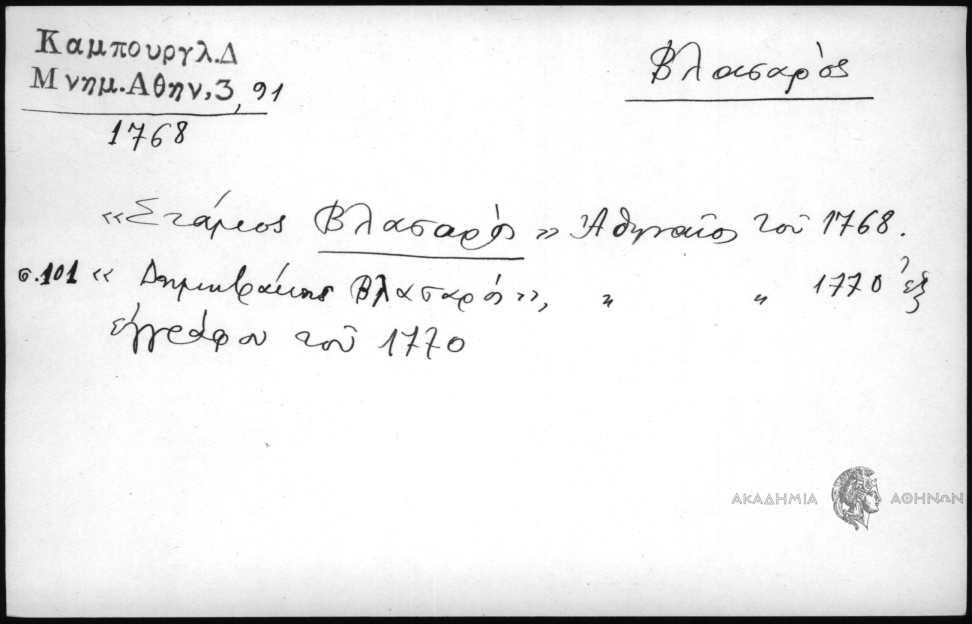 Καμπουργλ.Δ
Μνημ.Αθην,3, 91
1768
Βλασαρὸς
«Στάμος Βλασαρὸς» Ἀθηναῖος τοῦ 1768.
σ.101 « Δημητράκης Βλασαρός», " " 1770 ἐξ
ἐγγράφου τοῦ 1770
ΑΚΑΔΗΜΙΑ ΑΘΗΝΩΝ